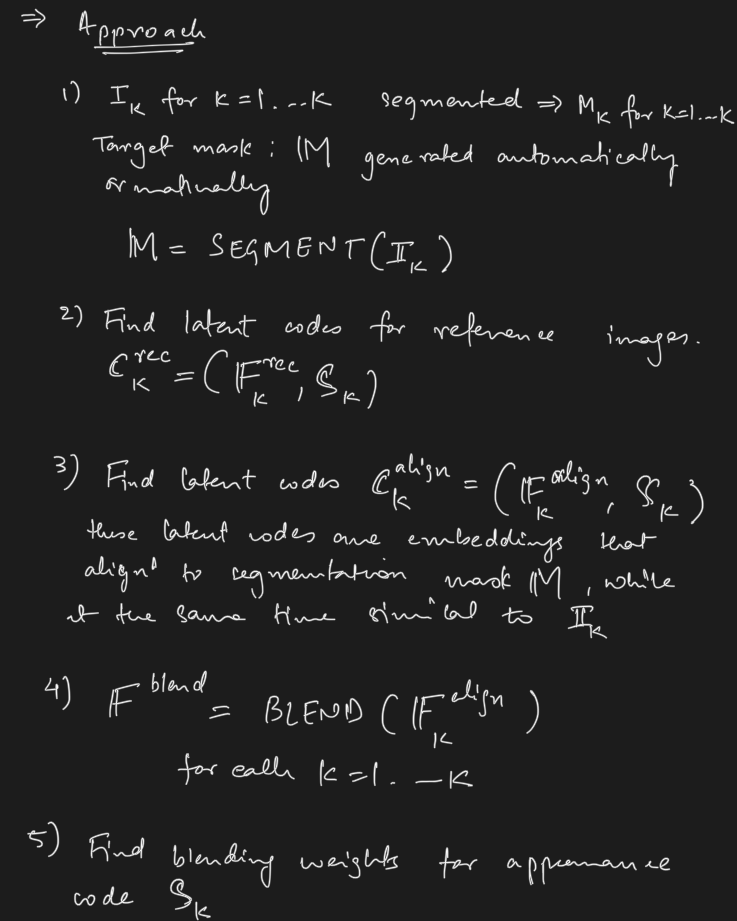 ⇒ Approach
1) I_K for K=1...K segmented ⇒ M_K for K=1...K
Target mask : M generated automatically
or manually
M = SEGMENT(I_K)
2) Find latent codes for reference images.
C_K^rec = (F_K^rec, S_K)
3) Find latent codes C_K^align = (F_K^align, S_K)
these latent codes are embeddings that
align to segmentation mask M, while
at the same time similar to I_K
4) F^blend = BLEND(F_K^align)
for each K=1.-K
5) Find blending weights for appearance
code S_K